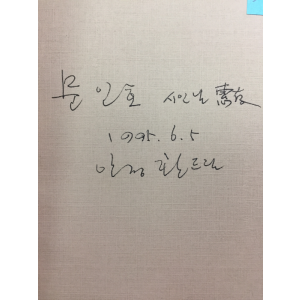 문 인호 시인님 惠存
1995. 6. 5
드림